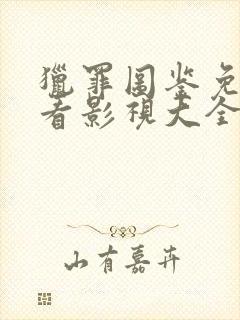 獵罪圖鉴免
看影視大全
山有嘉卉